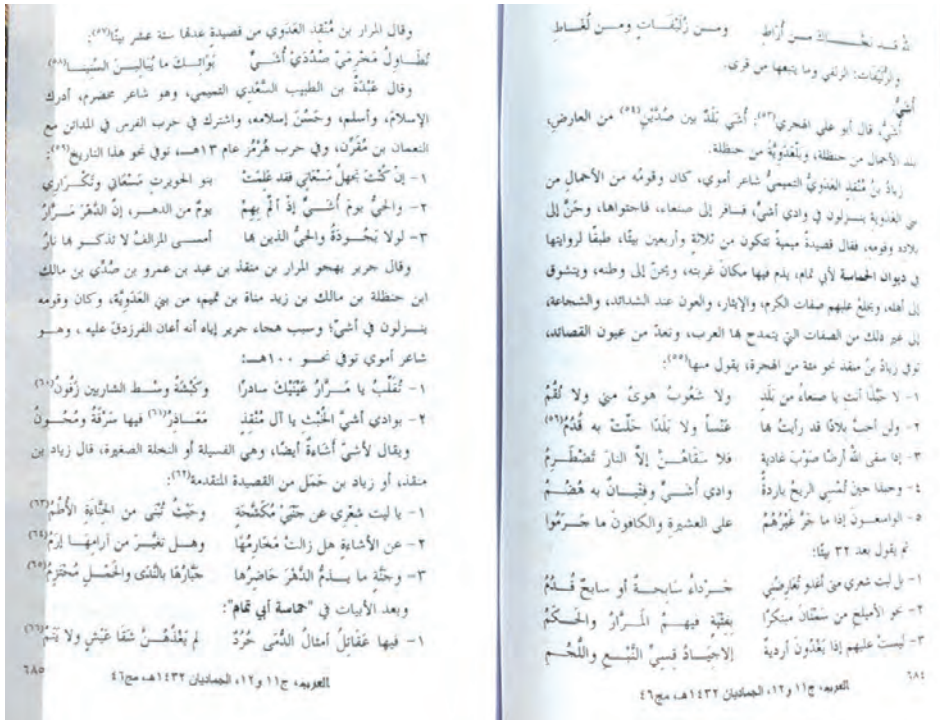 لله قد نحـــاك مـن أُراط ومـن زُلَيفـات ومـن لُغـاط
والزُّلَيْفَات: الزلفي وما يتبعها من قرى.
أُشَيٌّ
أُشَيٌّ، قال أبو علي الهجري(٥٣): أُشَي بَلَدٌ بين صُدَّيْن(٥٤) من العارض،
بلد الأحمال من حنظلة، وبَلْعَدَوِيَّة من حنظلة.
زيادُ بنُ مُنْقِذ العَدَويُّ التميميُّ شاعر أموي، كان وقومُه من الأحمال من
بني العَدَوية ينـزلون في وادي أشيٍّ، فسافر إلى صنعاء، فاجتواها، وحَنَّ إلى
بلاده وقومه، فقال قصيدةً ميميةً تتكون من ثلاثةٍ وأربعين بيتًا، طبقًا لروايتها
في ديوان الحماسة لأبي تمام، يذم فيها مكانَ غربته، ويحنّ إلى وطنه، ويتشوق
إلى أهله، ويخلعُ عليهم صفات الكرم، والإيثار، والعون عند الشدائد، والشجاعة،
إلى غير ذلك من الصفات التي يتمدح بها العرب، وتعدّ من عيون القصائد،
توفي زيادُ بنُ منقذ نحو مئة من الهجرة، يقول منها(٥٥):
١- لا حَبَّذا أنتِ يا صنعاءُ من بَلَدٍ ولا شَعُوبُ هوىً مني ولا نُقُمُ
٢- ولن أحبَّ بلادًا قد رأيتُ بها عَنْساً ولا بَلَدًا حَلَّتْ به قُدُمُ(٥٦)
٣- إذا سقى اللهُ أرضًا صَوْبَ غاديةٍ فلا سَقَاهُـنَّ إلاَّ النارَ تَضْطَـرِمُ
٤- وحبذا حينَ تُمْسِي الريحُ باردةً وادي أُشَـيٍّ وفِتْيَـانٌ به هُضُـمُ
٥- الواسعـونَ إذا ما جَرَّ غَيْرُهُمُ على العشيرةِ والكافونَ ما جَـرَمُوا
ثم يقول بعد ٣٢ بيتًا:
١- بل ليت شعري متى أغدو تُعَارِضُني جَـرْداءُ سَابحـةٌ أو سابحٌ قُـدُمُ
٢- نحو الأميلحِ من سَمْنَانَ مبتكرًا بفِتْيَةٍ فيهـمُ المَـرَّارُ والحَكَـمُ
٣- ليستْ عليهم إذا يَغْدُونَ أرديةٌ إلا جِيَـادُ قِسِيِّ النَّبْـعِ واللُّجُـمُ
٦٨٤
العرب، ج١١ و١٢، الجماديان ١٤٣٢هـ، مج٤٦
وقال المرار بن مُنْقِذ العَدَوي من قصيدة عدتها ستة عشر بيتًا(٥٧):
تُطَـاوِلُ مَخْرِمَيْ صُدُدَيْ أُشَـيٍّ بَوَائـكَ ما يُبَالِيـنَ السِّنِينـا(٥٨)
وقال عَبْدَةُ بن الطبيب السَّعْدي التميمي، وهو شاعر مخضرم، أدرك
الإسلامَ، وأسلم، وحَسُنَ إسلامه، واشترك في حرب الفرس في المدائن مع
النعمان بن مُقَرِّن، وفي حرب هُرْمُز عام ١٣هـ، توفي نحو هذا التاريخ(٥٩):
١- إنْ كُنْتَ تجهلُ مَسْعَاتي فقد عَلِمَتْ بنو الحويرثِ مَسْعَاتي وتَكْـرَاري
٢- والحيُّ يومَ أُشَـيٍّ إذْ ألمَّ بِهِمْ يومٌ من الدهـرِ، إنَّ الدَّهْرَ مَـرَّارُ
٣- لولا يَجُـودَةُ والحيُّ الذين بها أمسـى المزالفُ لا تذكـو بها نارُ
وقال جرير يهجو المرار بن منقذ بن عبد بن عمرو بن صُدَّي بن مالك
ابن حنظلة بن مالك بن زيد مناة بن تميم، من بني العَدَويَّة، وكان وقومه
ينـزلون في أشيٍّ؛ وسبب هجاء جرير إياه أنه أعان الفرزدق عليه ، وهـو
شاعر أموي توفي نحـو ١٠٠هـ:
١- تُقَلِّبُ يا مَـرَّارُ عَيْنَيْكَ سادرًا وكَبْشَةُ وسْـط الشاربين زَفُونُ(٦٠)
٢- بوادي أشيَّ الخُبْثِ يا آل مُنْقذٍ مَعَـاذرُ(٦١) فيها سَرْقَةٌ ومُجُـونُ
ويقال لأشيٍّ أَشَاءةٌ أيضًا، وهي الفسيلة أو النخلة الصغيرة، قال زياد بن
منقذ، أو زياد بن حَمَل من القصيدة المتقدمة(٦٢):
١- يا ليت شعْري عن جَنْبَيْ مُكَشَّحَةٍ وحَيْثُ تُبْنَى من الحِنَّاءَةِ الأُطُمُ(٦٣)
٢- عن الأشاءةِ هل زالتْ مَخَارِمُهَا وهـل تغيَّـرَ من آرامِهَـا إرَمُ(٦٤)
٣- وجَنَّةٍ ما يـذمُّ الدَّهْرَ حَاضِرُها جَبَّارُهَا بالنَّدَى والحَمْـلِ مُحْتَزِمُ(٦٥)
وبعد الأبيات في "حماسة أبي تمام":
١- فيها عَقَائِلُ أمثالُ الدُّمَى خُرُدٌ لم يَغْذُهُـنَّ شَقَا عَيْشٍ ولا يَتَمُ(٦٦)
٦٨٥
العرب، ج١١ و١٢، الجماديان ١٤٣٢هـ، مج٤٦